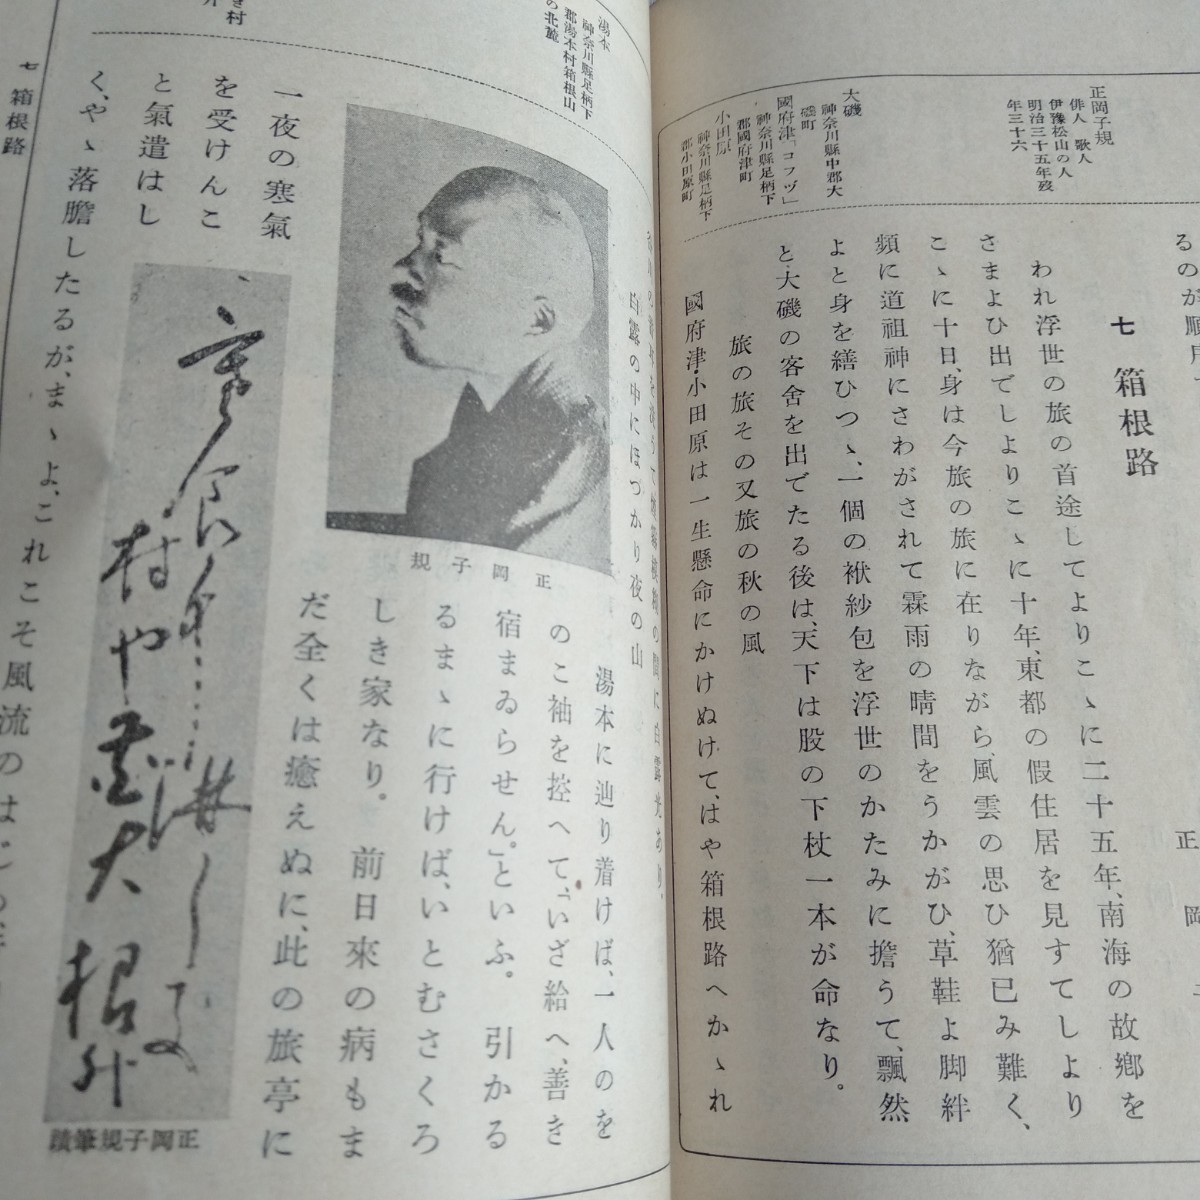 正岡子規
俳人 歌人
伊豫松山の人
明治三十五年歿
年三十六
大磯
神奈川縣中郡大
磯町
國府津「コフヅ」
神奈川縣足柄下
郡國府津町
小田原
神奈川縣足柄下
郡小田原町
七 箱根路
正岡子
われ浮世の旅の首途してよりこゝに二十五年、南海の故鄕を
さまよひ出でしよりこゝに十年、東都の假住居を見すてしより
こゝに十日、身は今旅の旅に在りながら、風雲の思ひ猶已み難く、
頻に道祖神にさわがされて霖雨の晴間をうかがひ、草鞋よ脚絆
よと身を繕ひつゝ、一個の袱紗包を浮世のかたみに擔うて、飄然
と大磯の客舍を出でたる後は、天下は股の下杖一本が命なり。
旅の旅その又旅の秋の風
國府津小田原は一生懸命にかけぬけて、はや箱根路へかゝれ
湯本
神奈川縣足柄下
郡湯本村箱根山
の北麓
白露の中にほつかり夜の山
湯本に辿り着けば、一人のを
のこ袖を控へて、「いざ給へ、善き
宿まゐらせん。」といふ。引かる
るまゝに行けば、いとむさくろ
しき家なり。前日來の病もま
だ全くは癒えぬに、此の旅亭に
正岡子規
一夜の寒氣
を受けんこ
と氣遣はし
く、やゝ落膽したるが、まゝよ、これこそ風流の
正岡子規筆蹟
七 箱根路